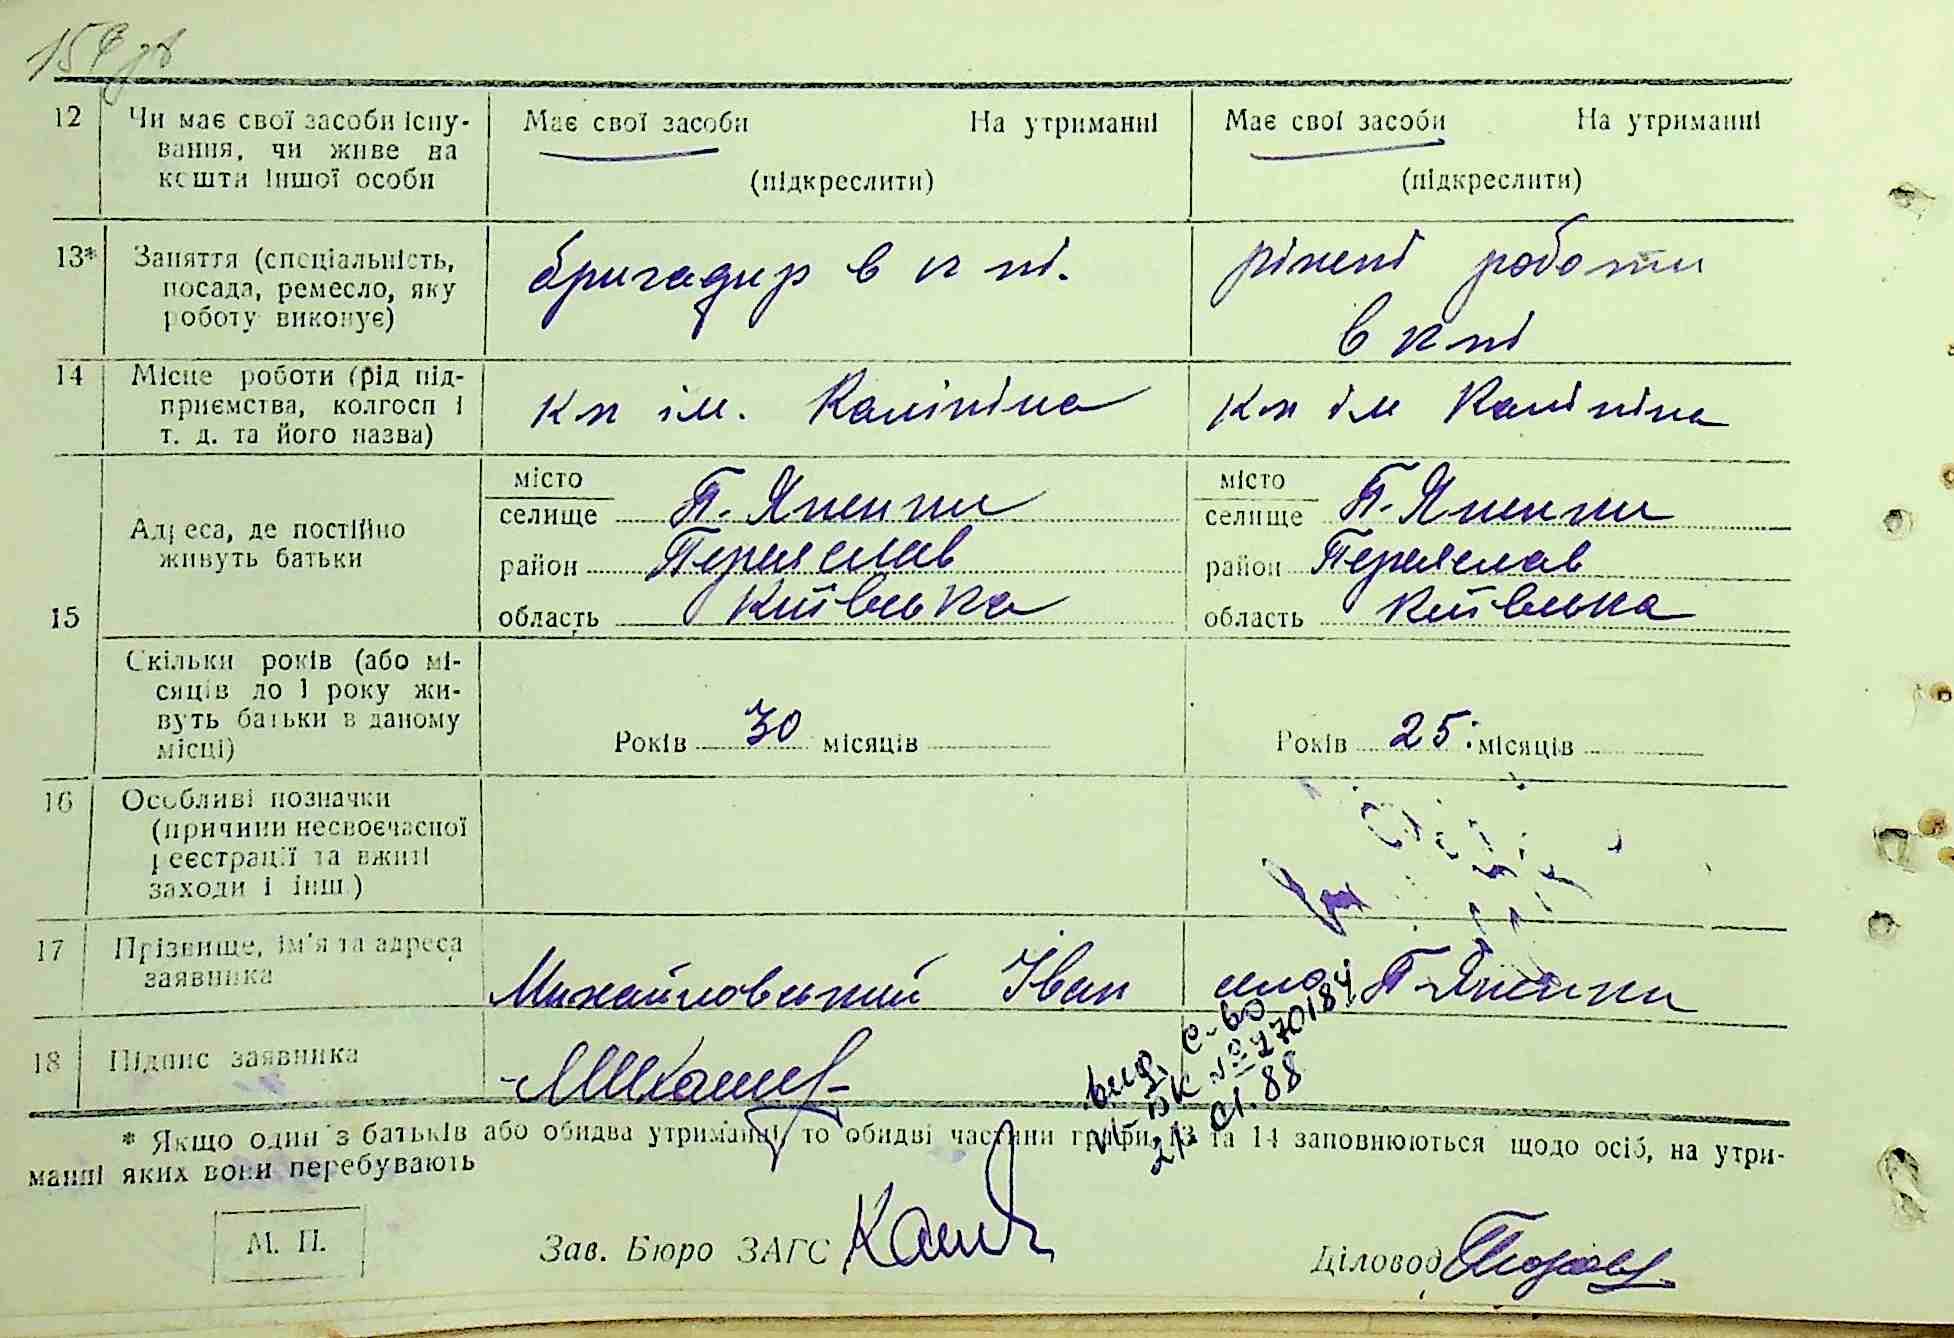 154 зв
12 Чи має свої засоби існу-
вання, чи живе на
кошти іншої особи
Має свої засоби На утриманні
(підкреслити)
Має свої засоби На утриманні
(підкреслити)
13* Заняття (спеціальність,
посада, ремесло, яку
роботу виконує)
бригадир в к ні.
різні роботи
в к ні
14 Місце роботи (рід під-
приємства, колгосп і
т. д. та його назва)
к-п ім. Калініна
к-п ім Калініна
15 Адреса, де постійно
живуть батьки
місто
селище П. Яненки
район Переяслав
область Київська
місто
селище П. Яненки
район Переяслав
область Київська
Скільки років (або мі-
сяців до 1 року жи-
вуть батьки в даному
місці)
Років 30 місяців
Років 25: місяців
16 Особливі позначки
(причини несвоєчасної
реєстрації та вжиті
заходи і інш.)
17 Прізвище, ім'я та адреса
заявника
Михайловський Іван село П-Яненки
18 Підпис заявника
вид. с-во
№ 270184
21 01.88
* Якщо один з батьків або обидва утриманці, то обидві частини графи 13 та 14 заповнюються щодо осіб, на утри-
манні яких вони перебувають
М. П.
Зав. Бюро ЗАГС
Діловод